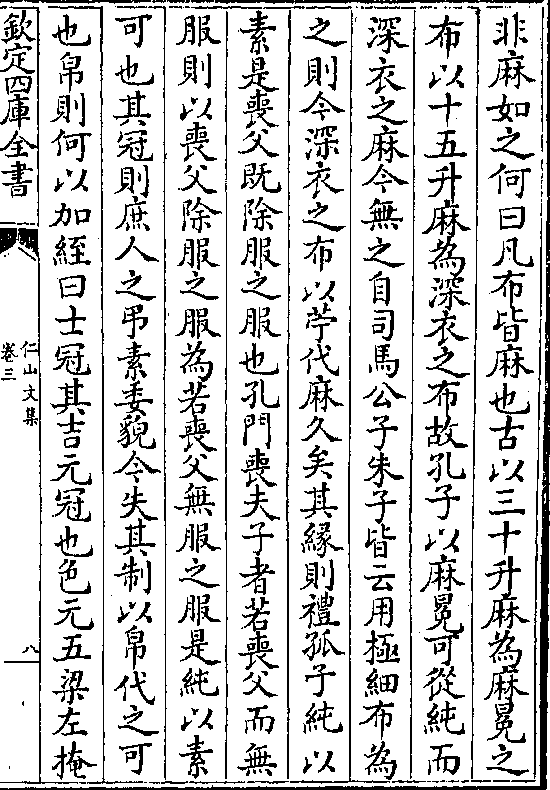 非麻如之何曰凡布皆麻也古以三十升麻為麻冕之
布以十五升麻為深衣之布故孔子以麻冕可從純而
深衣之麻今無之自司馬公子朱子皆云用極細布為
之則今深衣之布以苧代麻久矣其緣則禮孤子純以
素是喪父既除服之服也孔門喪夫子者若喪父而無
服則以喪父除服之服為若喪父無服之服是純以素
可也其冠則庶人之弔素委貌今失其制以帛代之可
也帛則何以加絰曰士冠其吉元冠也色元五梁左掩
欽定四庫全書
仁山文集
卷三
八